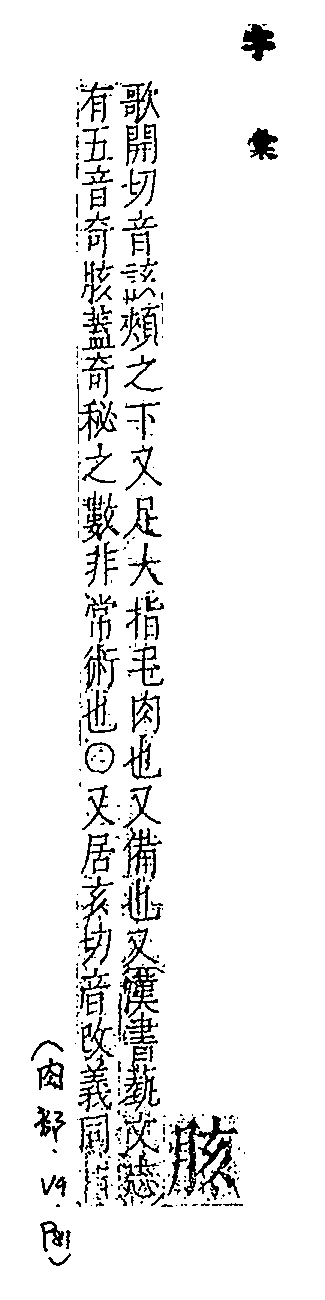 字彙
胲
歌開切音該頰之下又足大指毛肉也又備也又漢書藝文志
有五音奇胲蓋奇秘之數非常術也○又居亥切音改義同
(肉部.